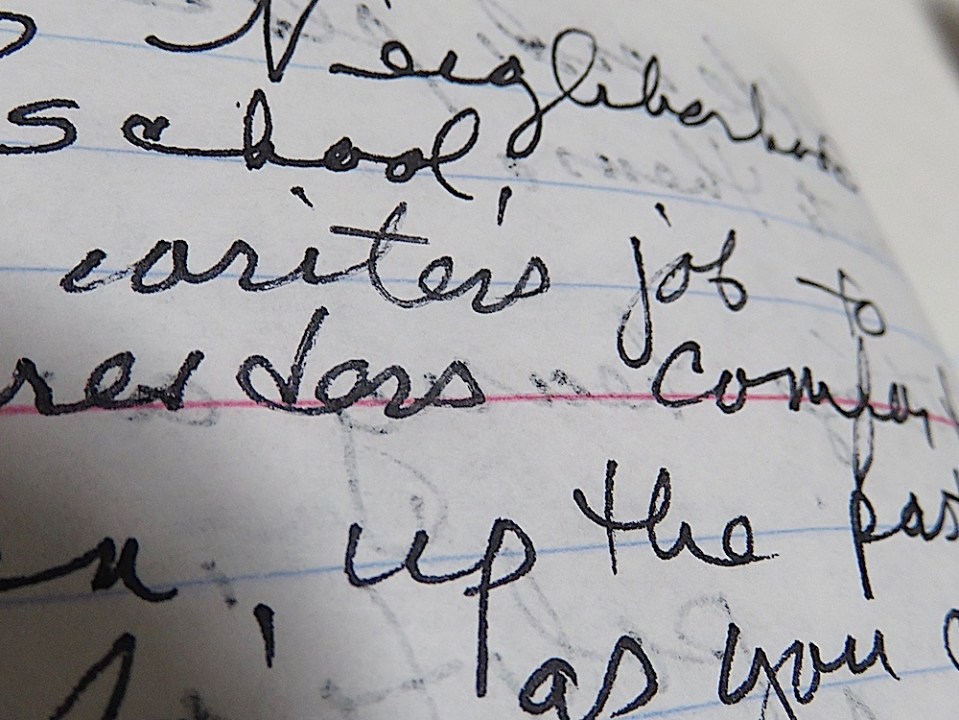 Neighborhood
school,
writer's job to
readers comfor
up the pas
as you